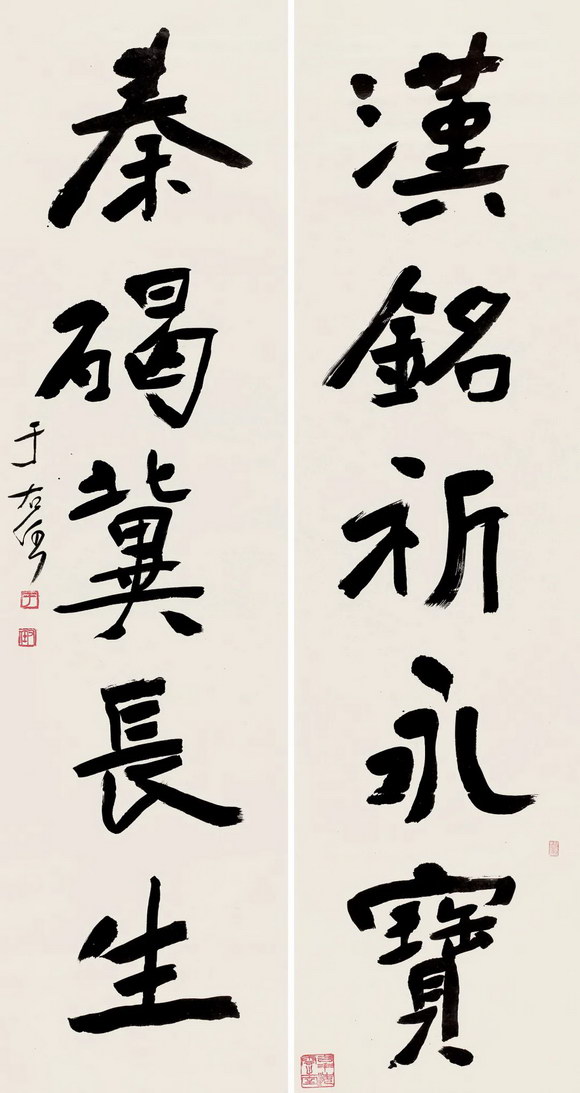 漢銘祈永寶
秦碣冀長生
于右任